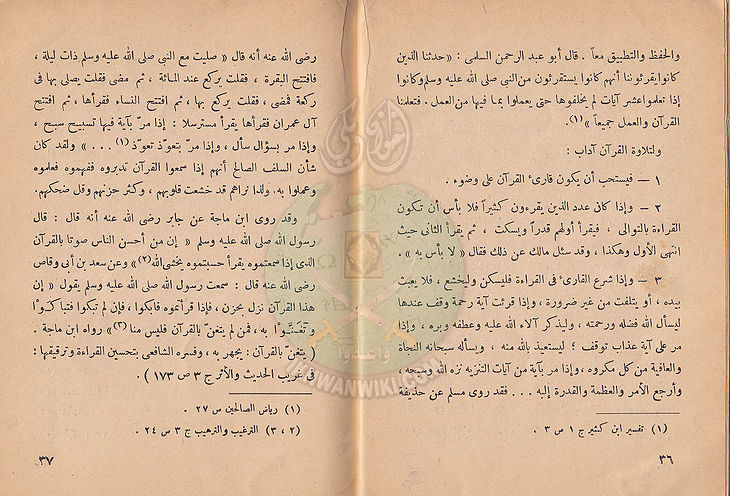 والحفظ والتطبيق معاً . قال أبو عبد الرحمن السلمى : « حدثنا الذين
كانوا يقرئوننا أنهم كانوا يستقرئون من النبي صلى الله عليه وسلم وكانوا
إذا تعلموا عشر آيات لم يخلفوها حتى يعملوا بما فيها من العمل . فتعلمنا
القرآن والعمل جميعاً » (١).
ولتلاوة القرآن آداب :
١ — فيستحب أن يكون قارىء القرآن على وضوء .
٢ — وإذا كان عدد الذين يقرءون كثيراً فلا بأس أن تكون
القراءة بالتوالى ، فيقرأ أولهم قدراً ويسكت ، ثم يقرأ الثانى حيث
انتهى الأول وهكذا ، وقد سئل مالك عن ذلك فقال « لا بأس به » .
٣ — وإذا شرع القارئ فى القراءة فليسكن وليخشع ، فلا يعبث
بيده ، أو يتلفت من غير ضرورة ، وإذا قرئت آية رحمة وقف عندها
ليسأل الله فضله ورحمته ، وليذكر آلاء الله عليه وعطفه وبره ، وإذا
مر على آية عذاب توقف ؛ ليستعيذ بالله منه ، ويسأله سبحانه النجاة
والعافية من كل مكروه ، وإذا مر بآية من آيات التنزيه نزه الله وسبحه ،
وأرجع الأمر والعظمة والقدرة إليه ... فقد روى مسلم عن حذيفة
(١) تفسير ابن كثير ج ١ ص ٣ .
٣٦
رضى الله عنه أنه قال « صليت مع النبي صلى الله عليه وسلم ذات ليلة ،
فافتتح البقرة ، فقلت يركع عند المائة ، ثم مضى فقلت يصلى بها فى
ركعة فمضى ، فقلت يركع بها ، ثم افتتح النساء فقرأها ، ثم افتتح
آل عمران فقرأها يقرأ مسترسلا : إذا مرّ بآية فيها تسبيح سبح ،
وإذا مر بسؤال سأل ، وإذا مرّ بتعوّذ تعوّذ (١) ... » ولقد كان
شأن السلف الصالح أنهم إذا سمعوا القرآن تدبروه ففهموه فعلموه
وعملوا به. ولذا نراهم قد خشعت قلوبهم ، وكثر حزنهم وقل ضحكهم.
وقد روى ابن ماجة عن جابر رضى الله عنه أنه قال : قال
رسول الله صلى الله عليه وسلم « إن من أحسن الناس صوتا بالقرآن
الذى إذا سمعتموه يقرأ حسبتموه يخشى الله (٢)» وعن سعد بن أبى وقاص
رضى الله عنه قال : سمعت رسول الله صلى الله عليه وسلم يقول « إن
هذا القرآن نزل بحزن ، فإذا قرأتموه فابكوا ، فإن لم تبكوا فتباكَوْا
وتَغَنَّوْا به ، فمن لم يتغنّ بالقرآن فليس منا (٣)» رواه ابن ماجة .
( يتغنّ بالقرآن : يجهر به ، وفسره الشافعى بتحسين القراءة وترقيقها :
فى غريب الحديث والأثر ج ٣ ص ١٧٣ ) .
(١) رياض الصالحين ص ٢٧ .
(٢ ، ٣) الترغيب والترهيب ج ٣ ص ٢٤ .
٣٧
وأعدوا
IKHWANWIKI.COM